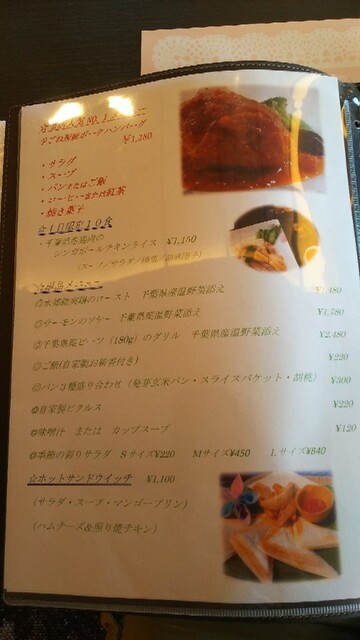 手ごね煮込ポークハンバーグ
¥1,280
・サラダ
・スープ
・パンまたはご飯
・コーヒーまたは紅茶
・焼き菓子
☆1日限定10食
シンガポールチキンライス ¥1,150
のロースト 千葉県産温野菜添え
①サーモンのソテー 千葉県産温野菜添え ¥1,780
(180g)のグリル 千葉県産温野菜添え ¥2,480
◎ご飯(自家製お新香付き) ¥220
◎パン3種盛り合わせ(発芽玄米パン・スライスバケット・胡桃) ¥300
自家製ピクルス ¥220
味噌汁 または カップスープ ¥120
季節の彩りサラダ Sサイズ¥220 Mサイズ¥450 Lサイズ¥840
☆ホットサンドウイッチ ¥1,100
(サラダ・スープ・マンゴープリン)
(ハムチーズ&照り焼チキン)